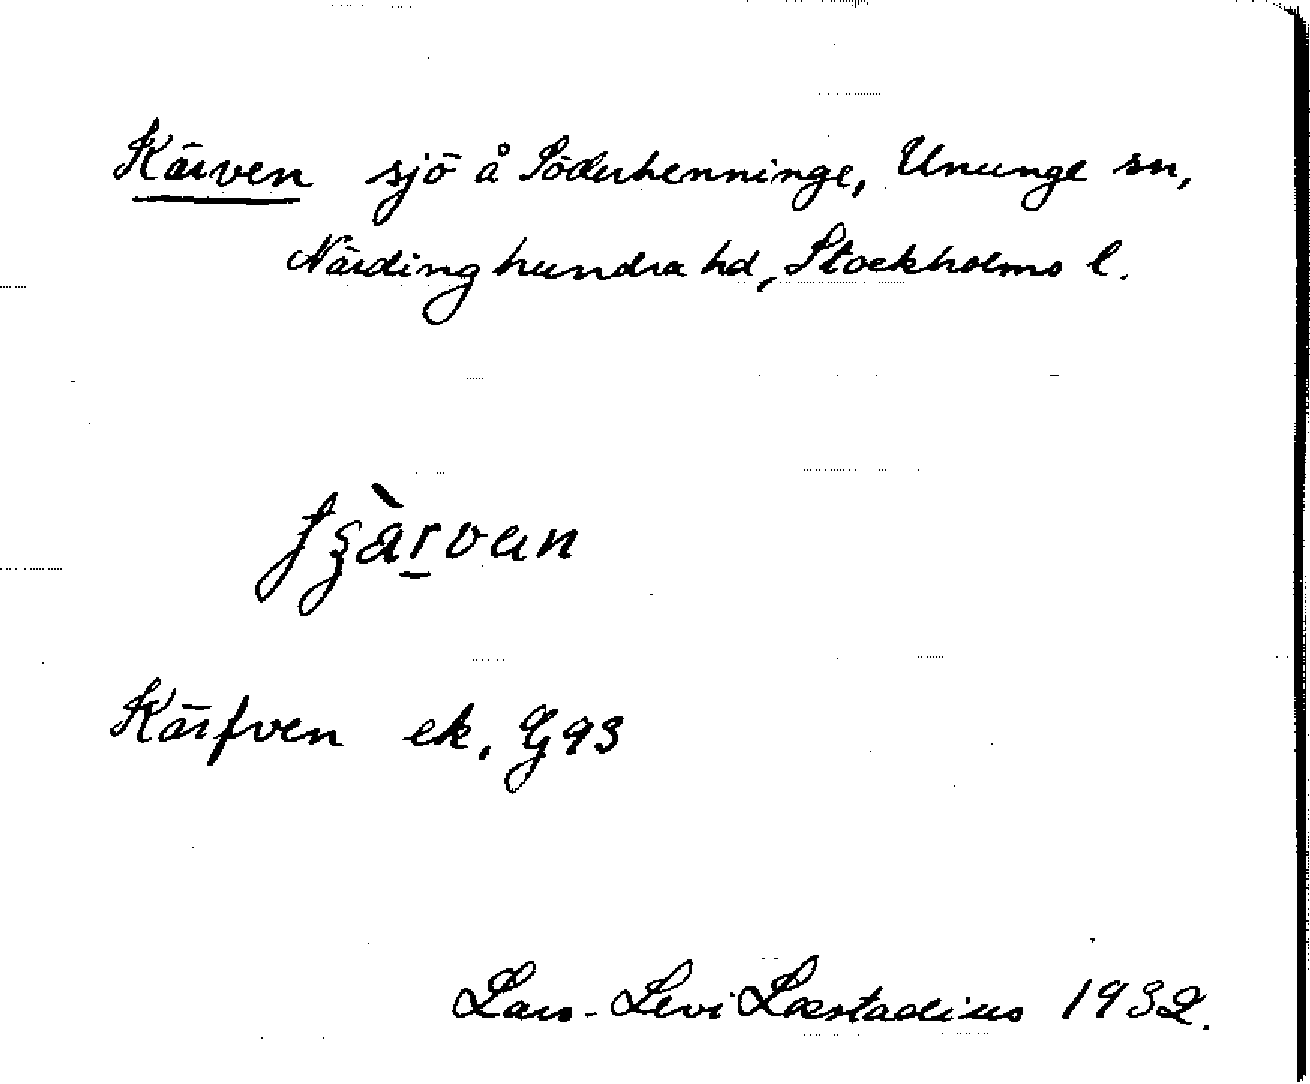 Kärven sjö å Söderhenninge, Ununge sn,
Närdinghundra hd, Stockholms l.
Kärfven ek. G93
Lars-Levi Læstadius 1932.